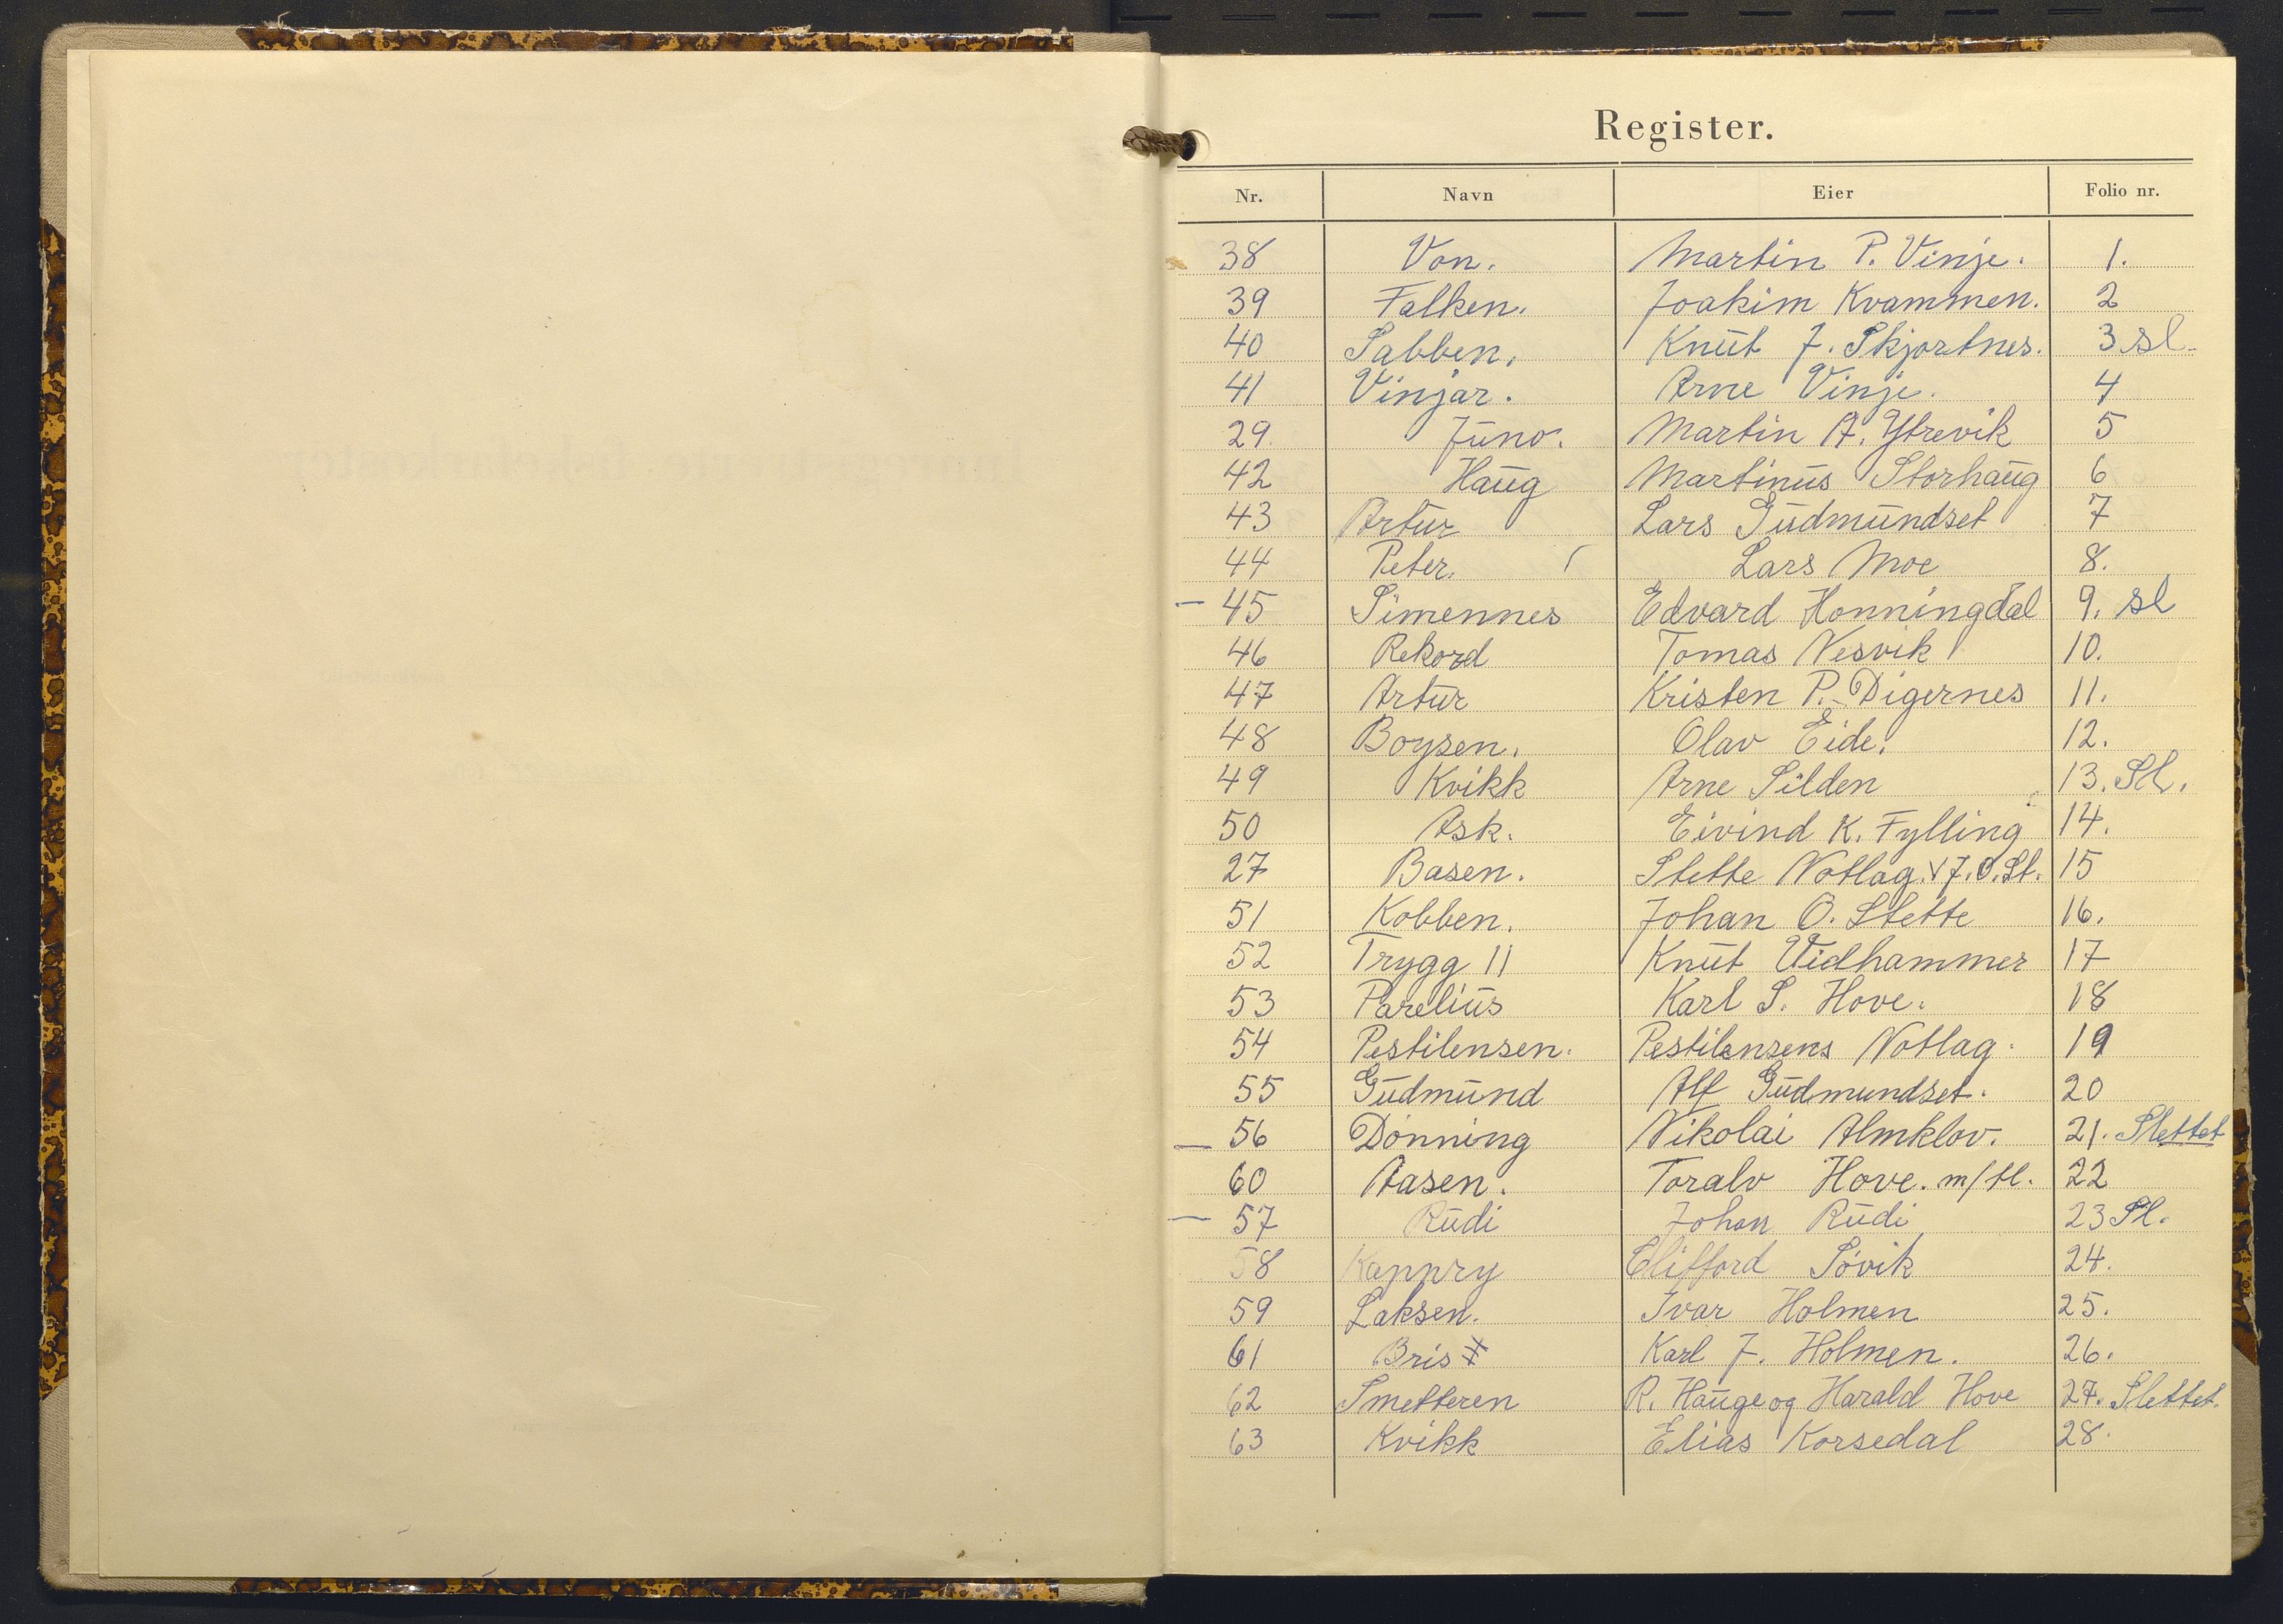 Register.
Nr. Navn Eier Folio nr.
38 Von. Martin P. Vinje. 1.
39 Falken. Joakim Kvammen. 2
40 Sabben. Knut J. Skjortnes. 3 sl.
41 Vinjar. Arne Vinje. 4
29. Juno. Martin A. Ytrevik 5
42 Haug Martinus Storhaug 6
43 Artur Lars Gudmundset 7
44 Peter. Lars Moe 8.
– 45 Simennes Edvard Honningdal 9. sl
46 Rekord Tomas Nesvik 10.
47 Artur Kristen P. Digernes 11.
48 Boysen. Olav Eide. 12.
49 Kvikk Arne Silden 13. Sl.
50 Ask. Eivind K. Fylling 14.
27 Basen. Slette Notlag. v J. O. Sl. 15
51 Kobben. Johan O. Slette 16.
52 Trygg II Knut Vidhammer 17
53 Parelius Karl S. Hove. 18
54 Pestilensen. Pestilensens Notlag. 19
55 Gudmund Alf Gudmundset. 20
– 56 Dønning Nikolai Almklov. 21. Slettet
60 Aasen. Toralv Hove. m/fl. 22
– 57 Rudi Johan Rudi 23 Sl.
58 Clifford Søvik 24.
59 Laksen. Ivar Holmen 25.
61 Bris Karl J. Holmen. 26.
62 Smetteren R. Hauge og Harald Hove 27. Slettet.
63 Kvikk Elias Korsedal 28.